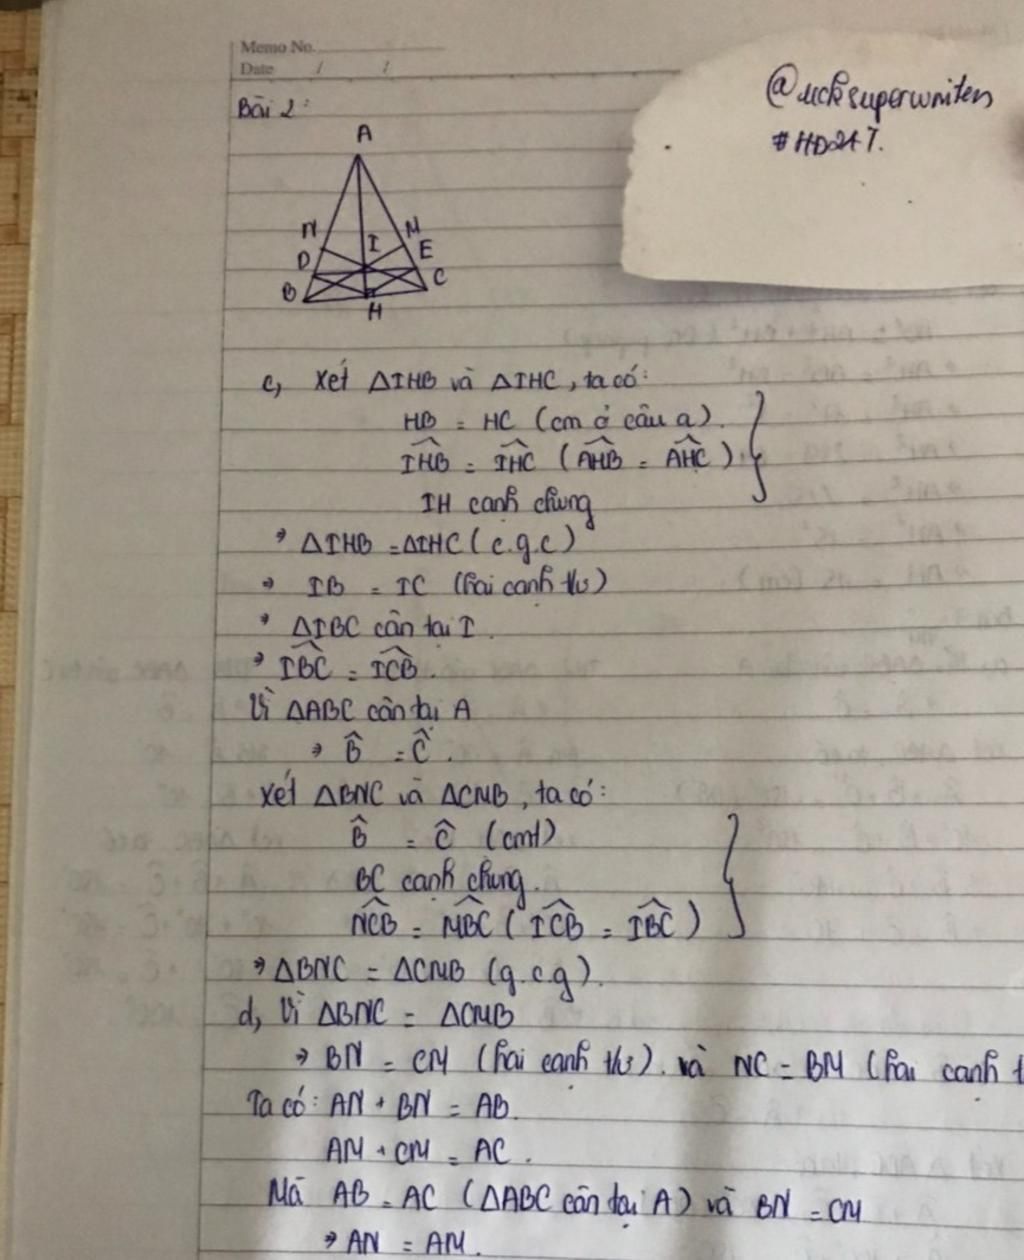 Memo No.
Date / /
@ucksuperwriten
#HD247.
Bài 2:
A
N
M
I
D
E
B
C
H
c, Xét ΔIHB và ΔIHC, ta có:
HB = HC (cm ở câu a).
IHB̂ = IHĈ (AHB̂ = AHĈ).
IH cạnh chung
⇒ ΔIHB = ΔIHC (c.g.c)
⇒ IB = IC (hai cạnh tư)
⇒ ΔIBC cân tại I.
⇒ IBĈ = ICB̂.
Vì ΔABC cân tại A
⇒ B̂ = Ĉ.
Xét ΔBNC và ΔCMB, ta có:
B̂ = Ĉ (cmt)
BC cạnh chung.
NCB̂ = MBĈ (ICB̂ = IBĈ)
⇒ ΔBNC = ΔCMB (g.c.g).
d, Vì ΔBNC = ΔCMB
⇒ BN = CM (hai cạnh tư). và NC = BM (hai cạnh t
Ta có: AN + BN = AB.
AM + CM = AC.
Mà AB = AC (ΔABC cân tại A) và BN = CM
⇒ AN = AM.